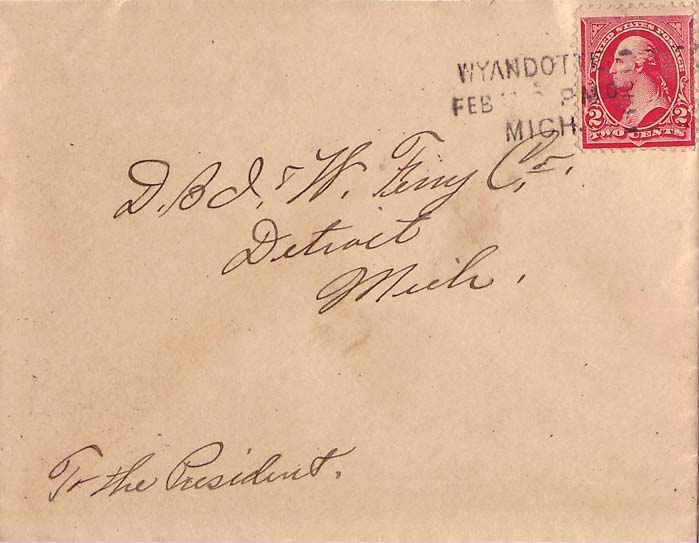 WYANDOTT
FEB 5 PM 02
MICH.
UNITED STATES POSTAGE
2 2
TWO CENTS
D. B. I. & W. Ferry Co.
Detroit
Mich.
To the President.